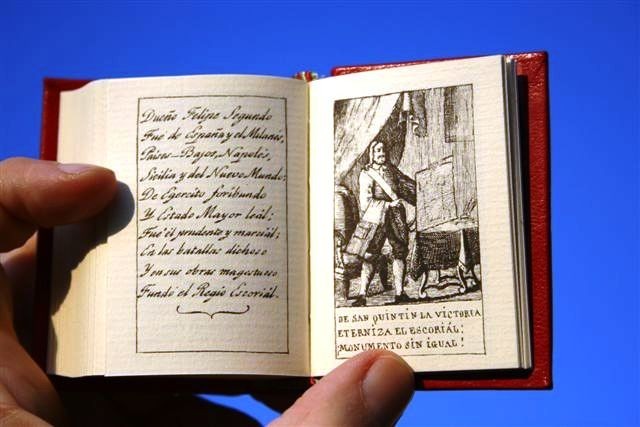 Dueño Felipe Segundo
Fué de España y el Milanés,
Países-Bajos, Nápoles,
Sicilia y del Nuevo Mundo;
De Egercito foribundo
Y Estado Mayor leál;
Fué el prudente y marciál;
En las batallas dichoso
Y en sus obras magestuoso
Fundó el Regio Escoriál.
DE SAN QUINTIN LA VICTORIA
ETERNIZA EL ESCORIÁL;
¡MONUMENTO SIN IGUAL!